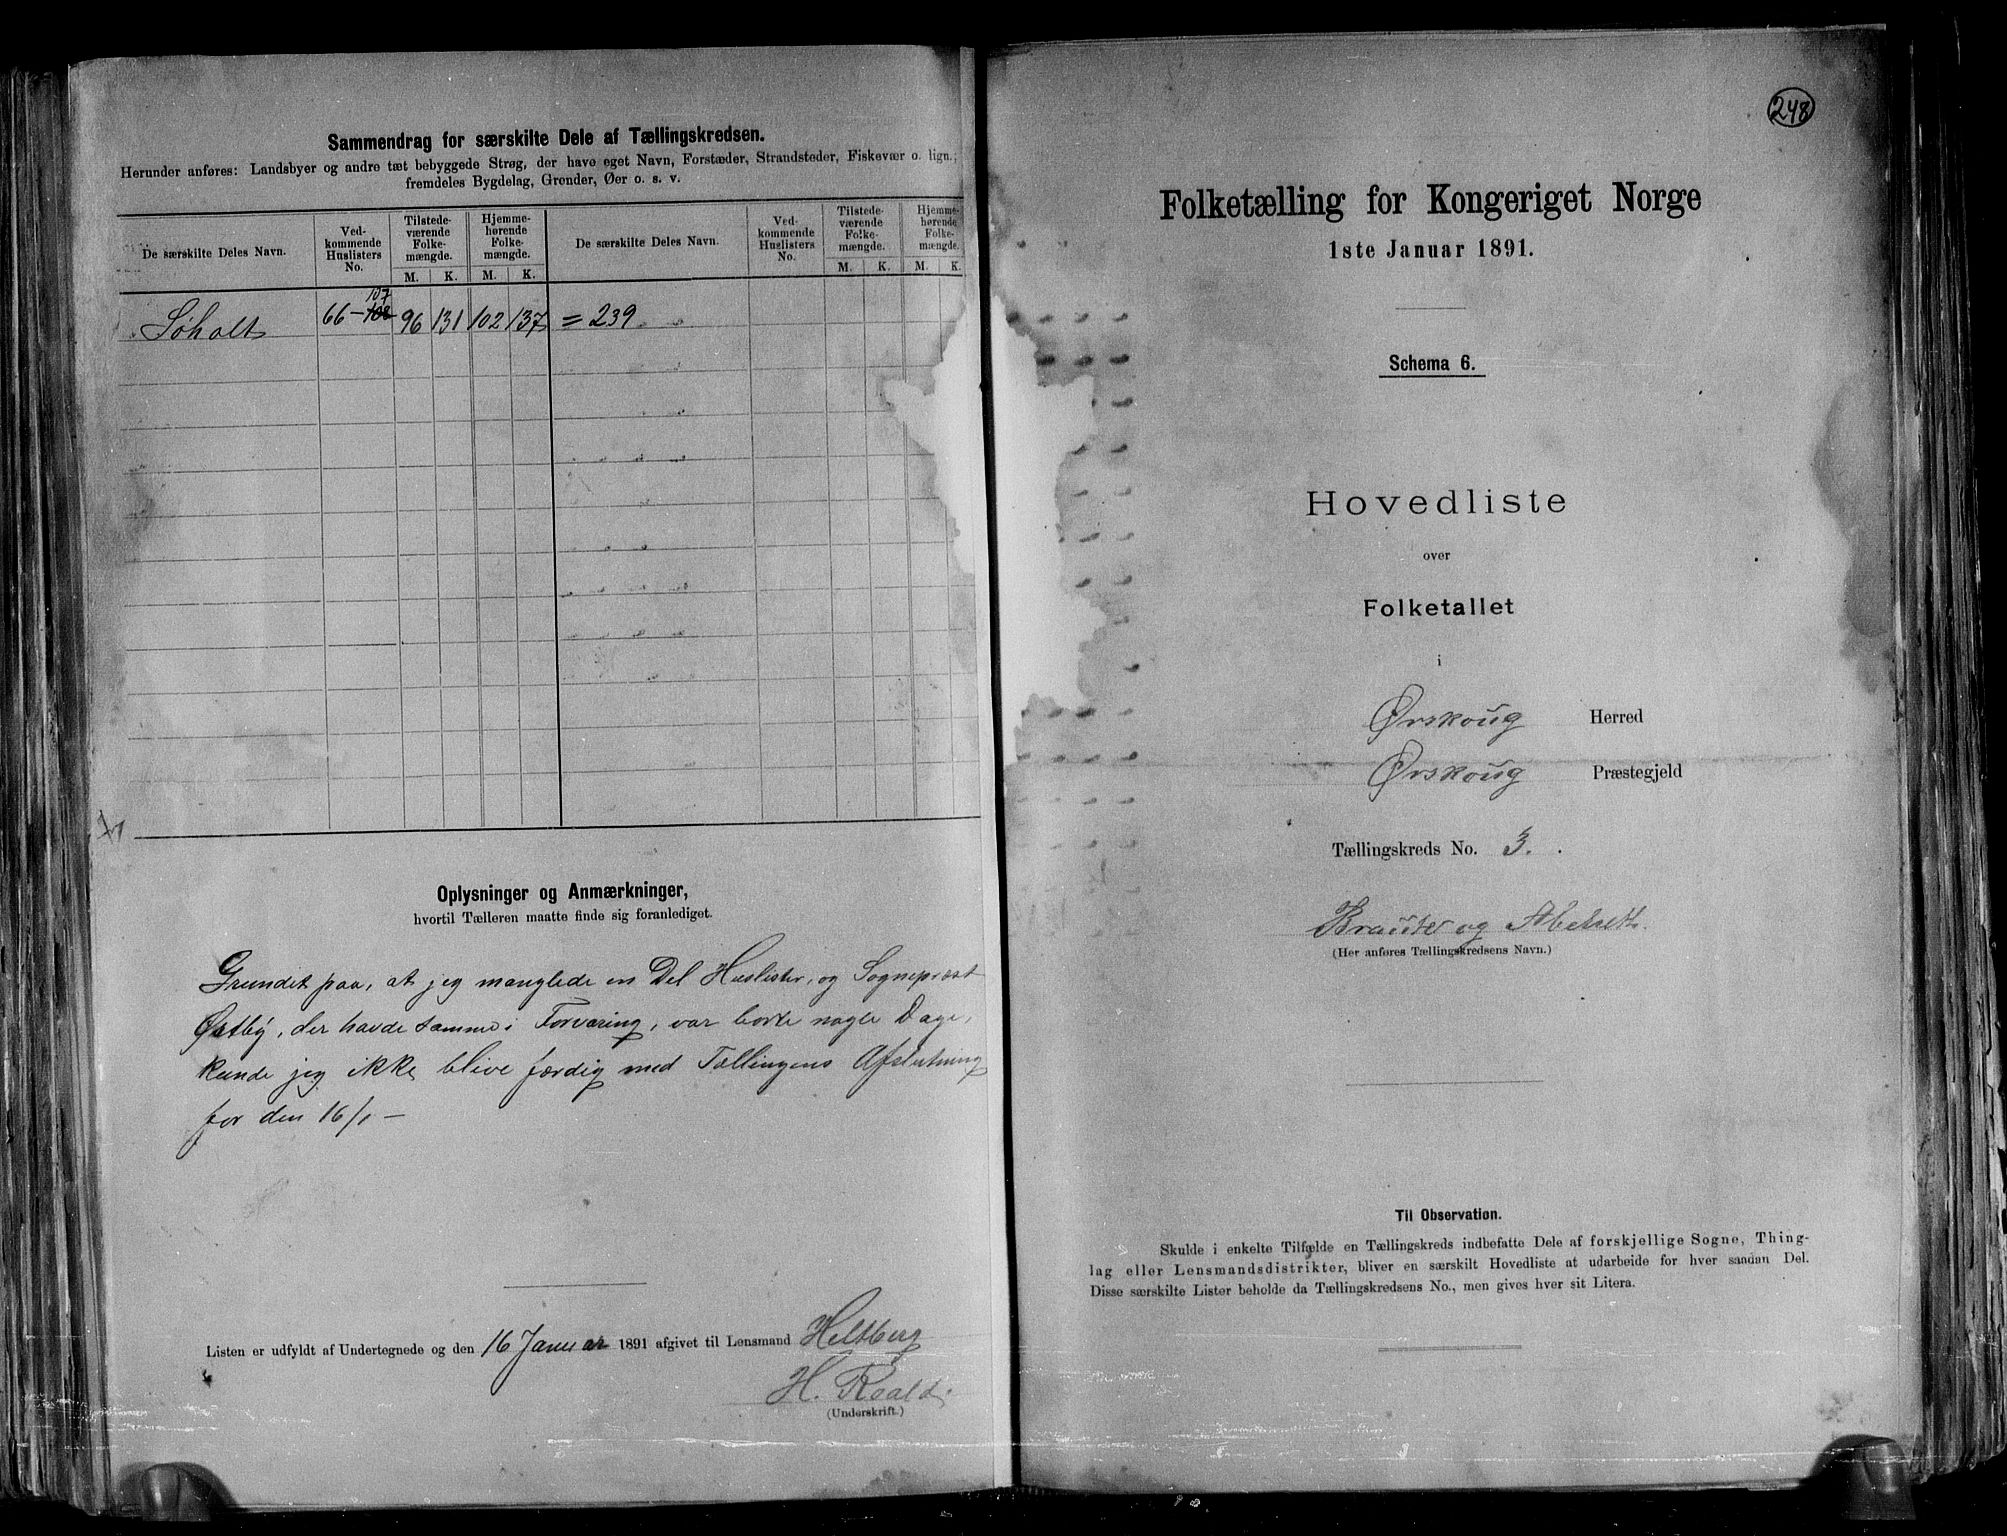 Sammendrag for særskilte Dele af Tællingskredsen.
Herunder anføres: Landsbyer og andre tæt bebyggede Strøg, der have eget Navn, Forstæder, Strandsteder, Fiskevær o. lign.;
fremdeles Bygdelag, Grender, Øer o. s. v.
De særskilte Deles Navn.
Ved-
kommende
Huslisters
No.
Tilstede-
værende
Folke-
mængde.
M. K.
Hjemme-
hørende
Folke-
mængde.
M. K.
De særskilte Deles Navn.
Ved-
kommende
Huslisters
No.
Tilstede-
værende
Folke-
mængde.
M. K.
Hjemme-
hørende
Folke-
mængde.
M. K.
107
Søholt 66–108 96 131 102 137 = 239
Oplysninger og Anmærkninger,
hvortil Tælleren maatte finde sig foranlediget.
Grundet paa, at jeg manglede en Del Huslister, og Sogneprest
Østby, der havde samme i Forvaring, var borte nogle Dage,
kunde jeg ikke blive færdig med Tællingens Afslutning
før den 16/1 –
Listen er udfyldt af Undertegnede og den 16 Januar 1891 afgivet til Lensmand Heltberg
H. Roald.
(Underskrift.)
248
Folketælling for Kongeriget Norge
1ste Januar 1891.
Schema 6.
Hovedliste
over
Folketallet
i
Ørskoug Herred
Ørskoug Præstegjeld
Tællingskreds No. 3.
Brauter og Abelseth.
(Her anføres Tællingskredsens Navn.)
Til Observation.
Skulde i enkelte Tilfælde en Tællingskreds indbefatte Dele af forskjellige Sogne, Thing-
lag eller Lensmandsdistrikter, bliver en særskilt Hovedliste at udarbeide for hver saadan Del.
Disse særskilte Lister beholde da Tællingskredsens No., men gives hver sit Litera.